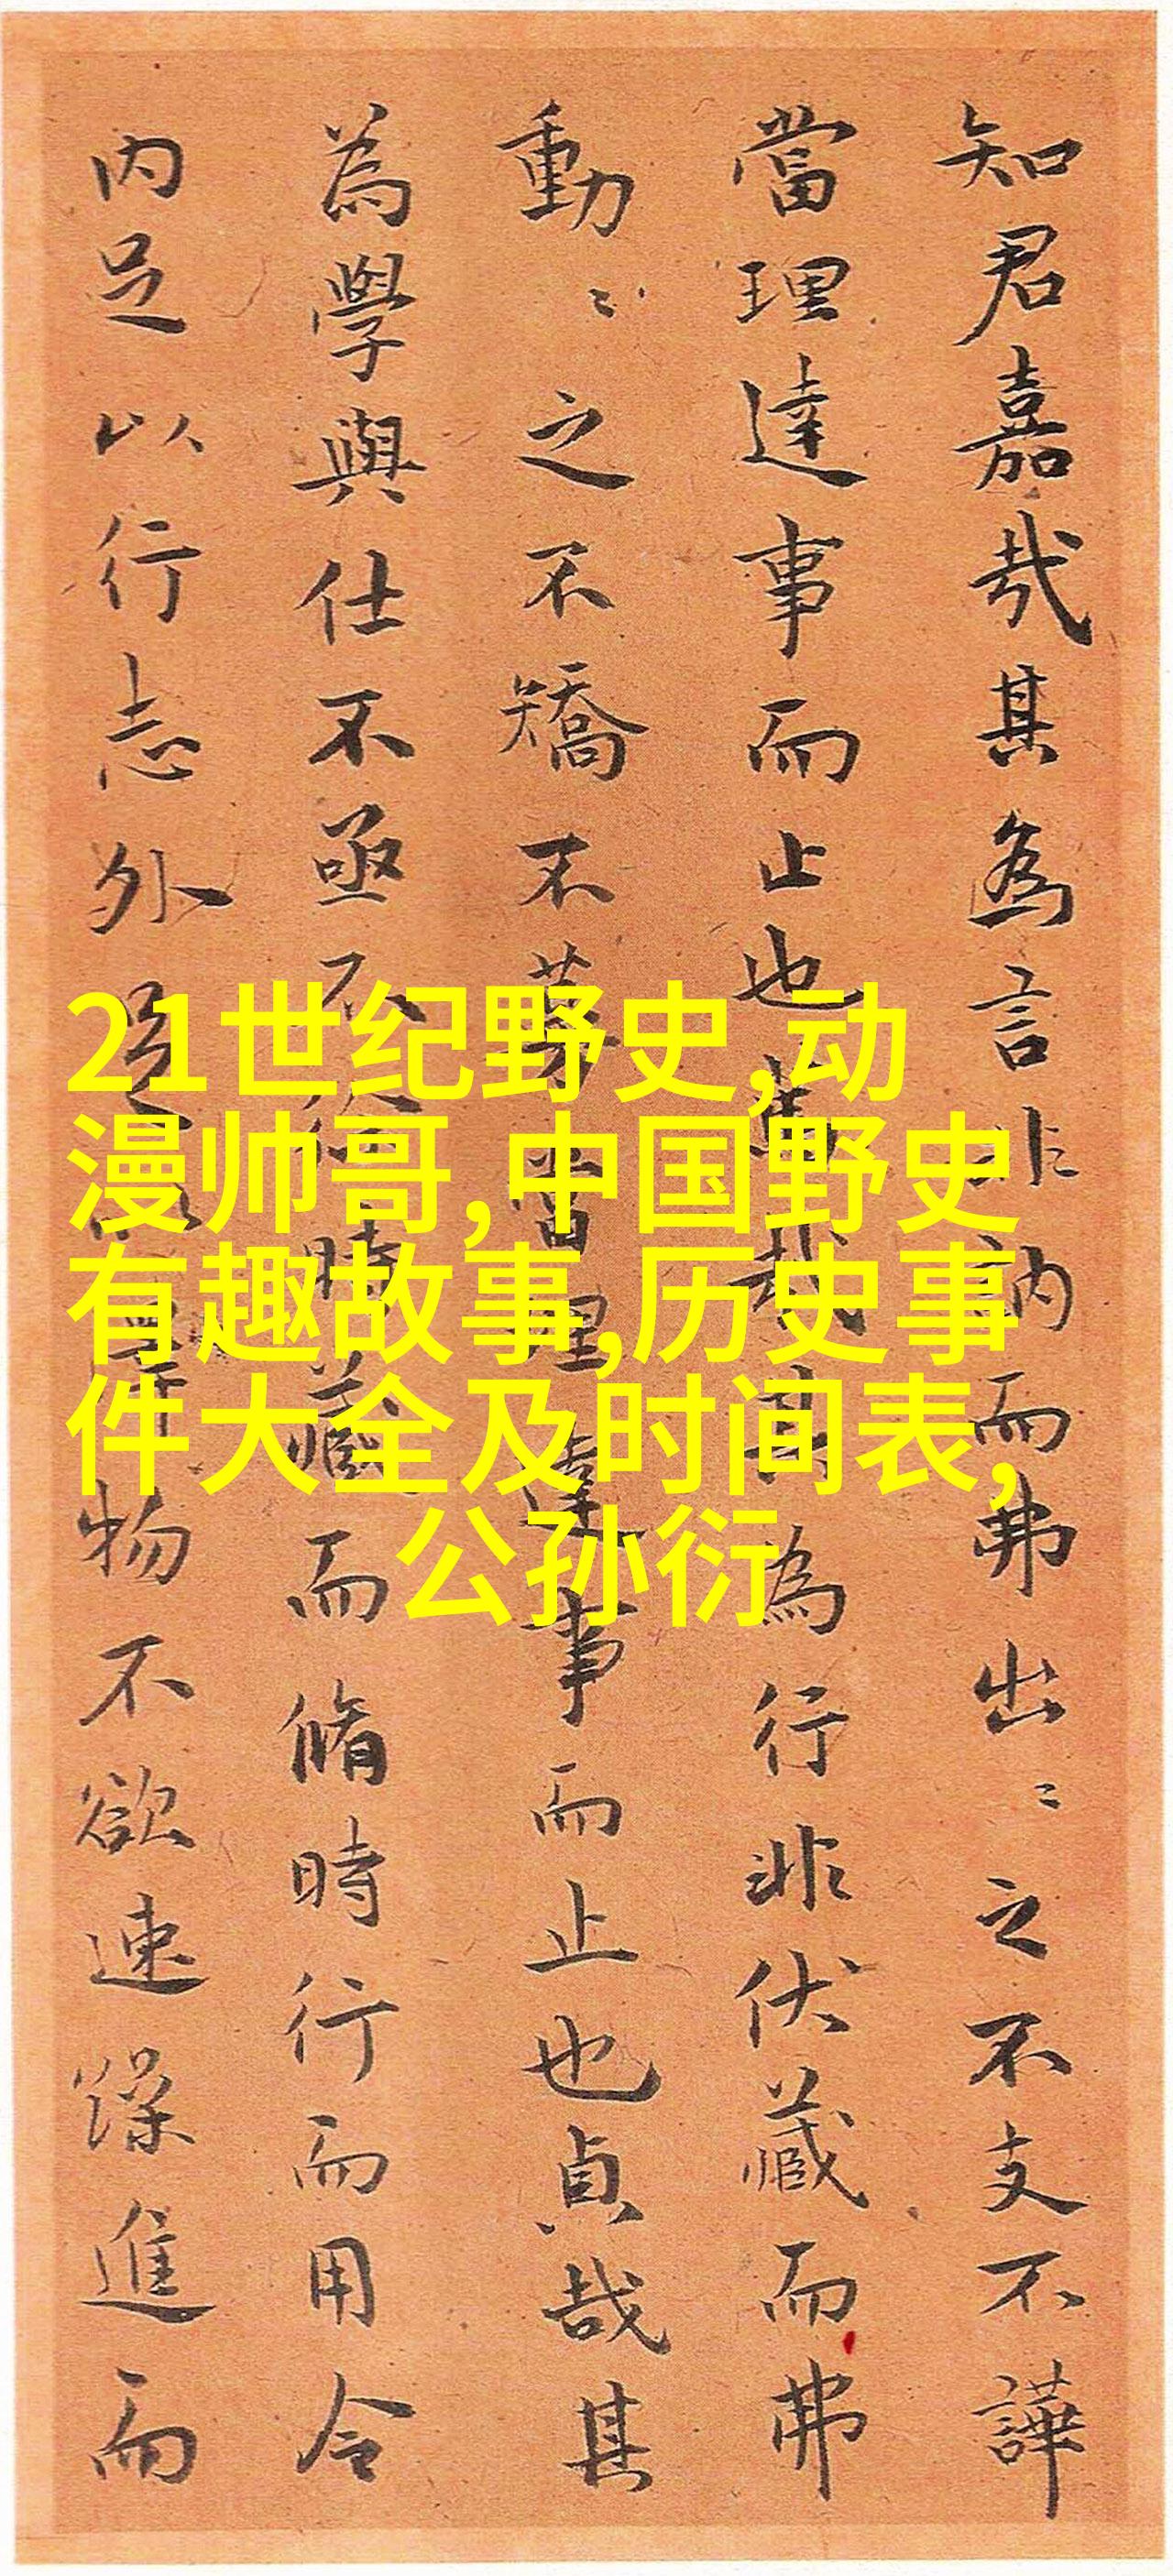 知君嘉哉其為言非訥而弗出〻之不支不譁
當理達事而止也哉其為行非伏藏而弗
動〻之不矯不當理達事而止也貞哉其
為學與仕不亟不時藏而脩時行而用令
内足以行志外足以物不欲速躁進而
21世纪野史,动
漫帅哥,中国野史
有趣故事,历史事
件大全及时间表,
公孙衍